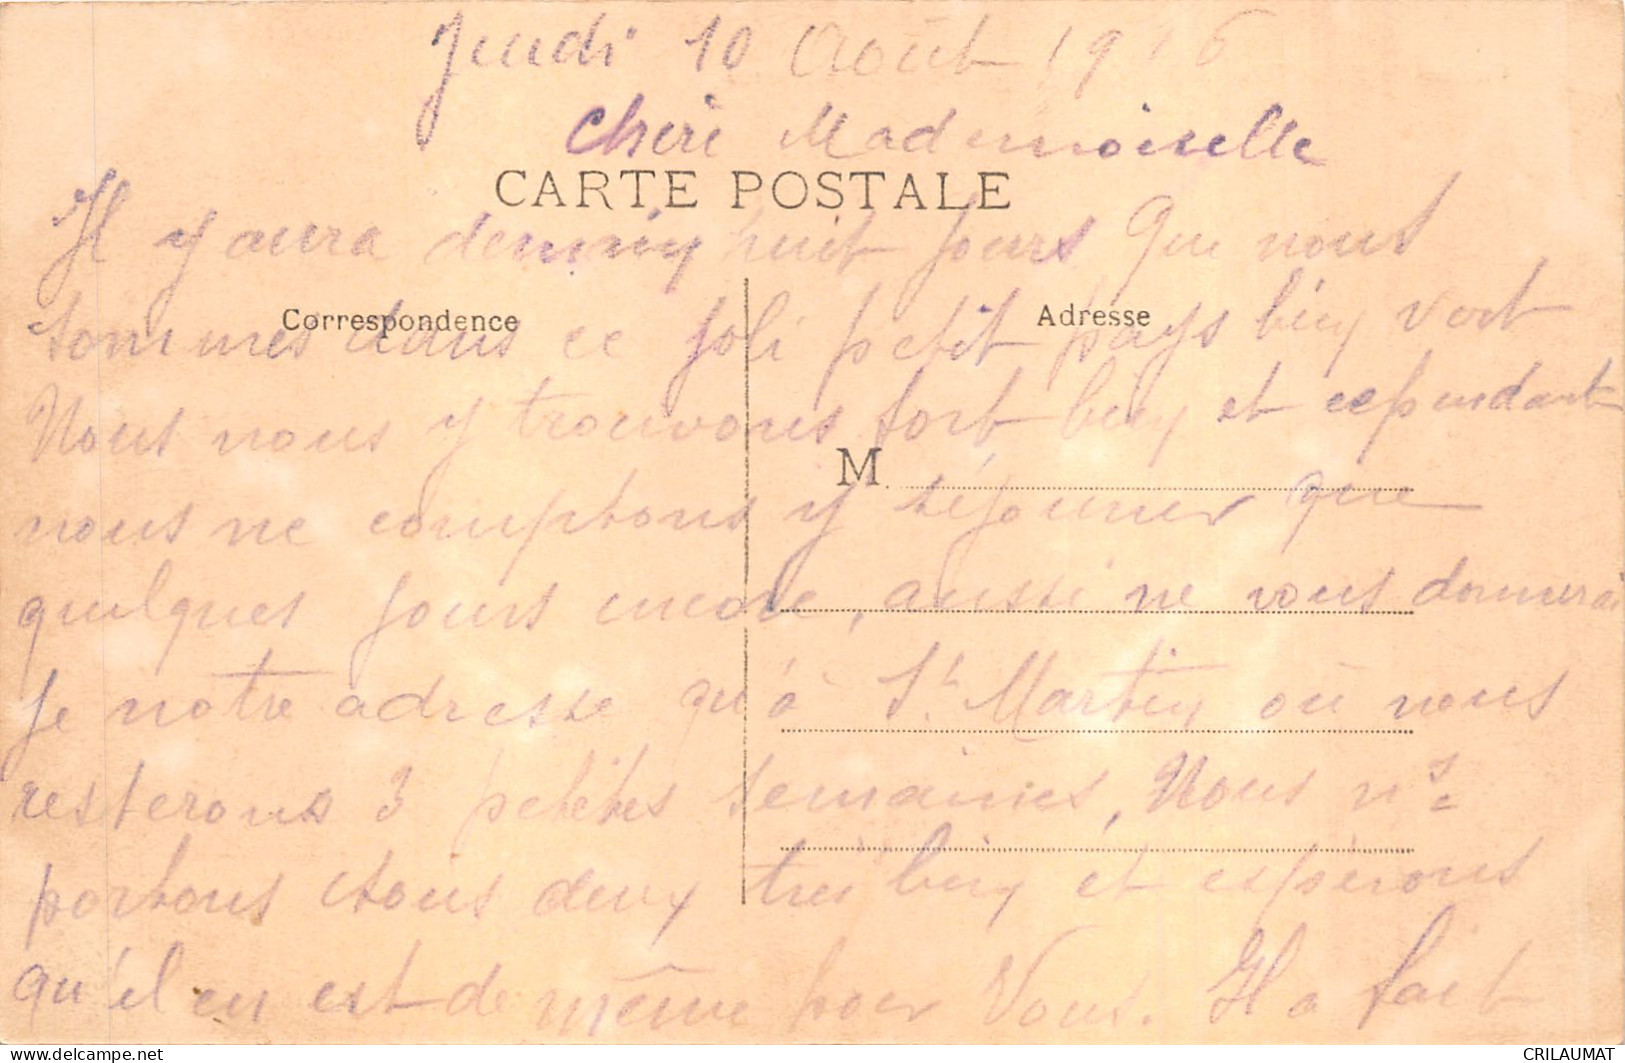 Jeudi 10 Août 1916
Chère Mademoiselle
CARTE POSTALE
Il y aura demain huit jours que nous
Correspondence
Adresse
sommes dans ce joli petit pays bien vert
Nous nous y trouvons fort bien et cependant
M
nous ne comptons y séjourner que
quelques jours encore, aussi ne vous donnerai
je notre adresse qu'à St. Martin où nous
resterons 3 petites semaines, Nous ns
portons tous deux très bien et espérons
qu'il en est de même pour Vous. Il a fait
CRILAUMAT